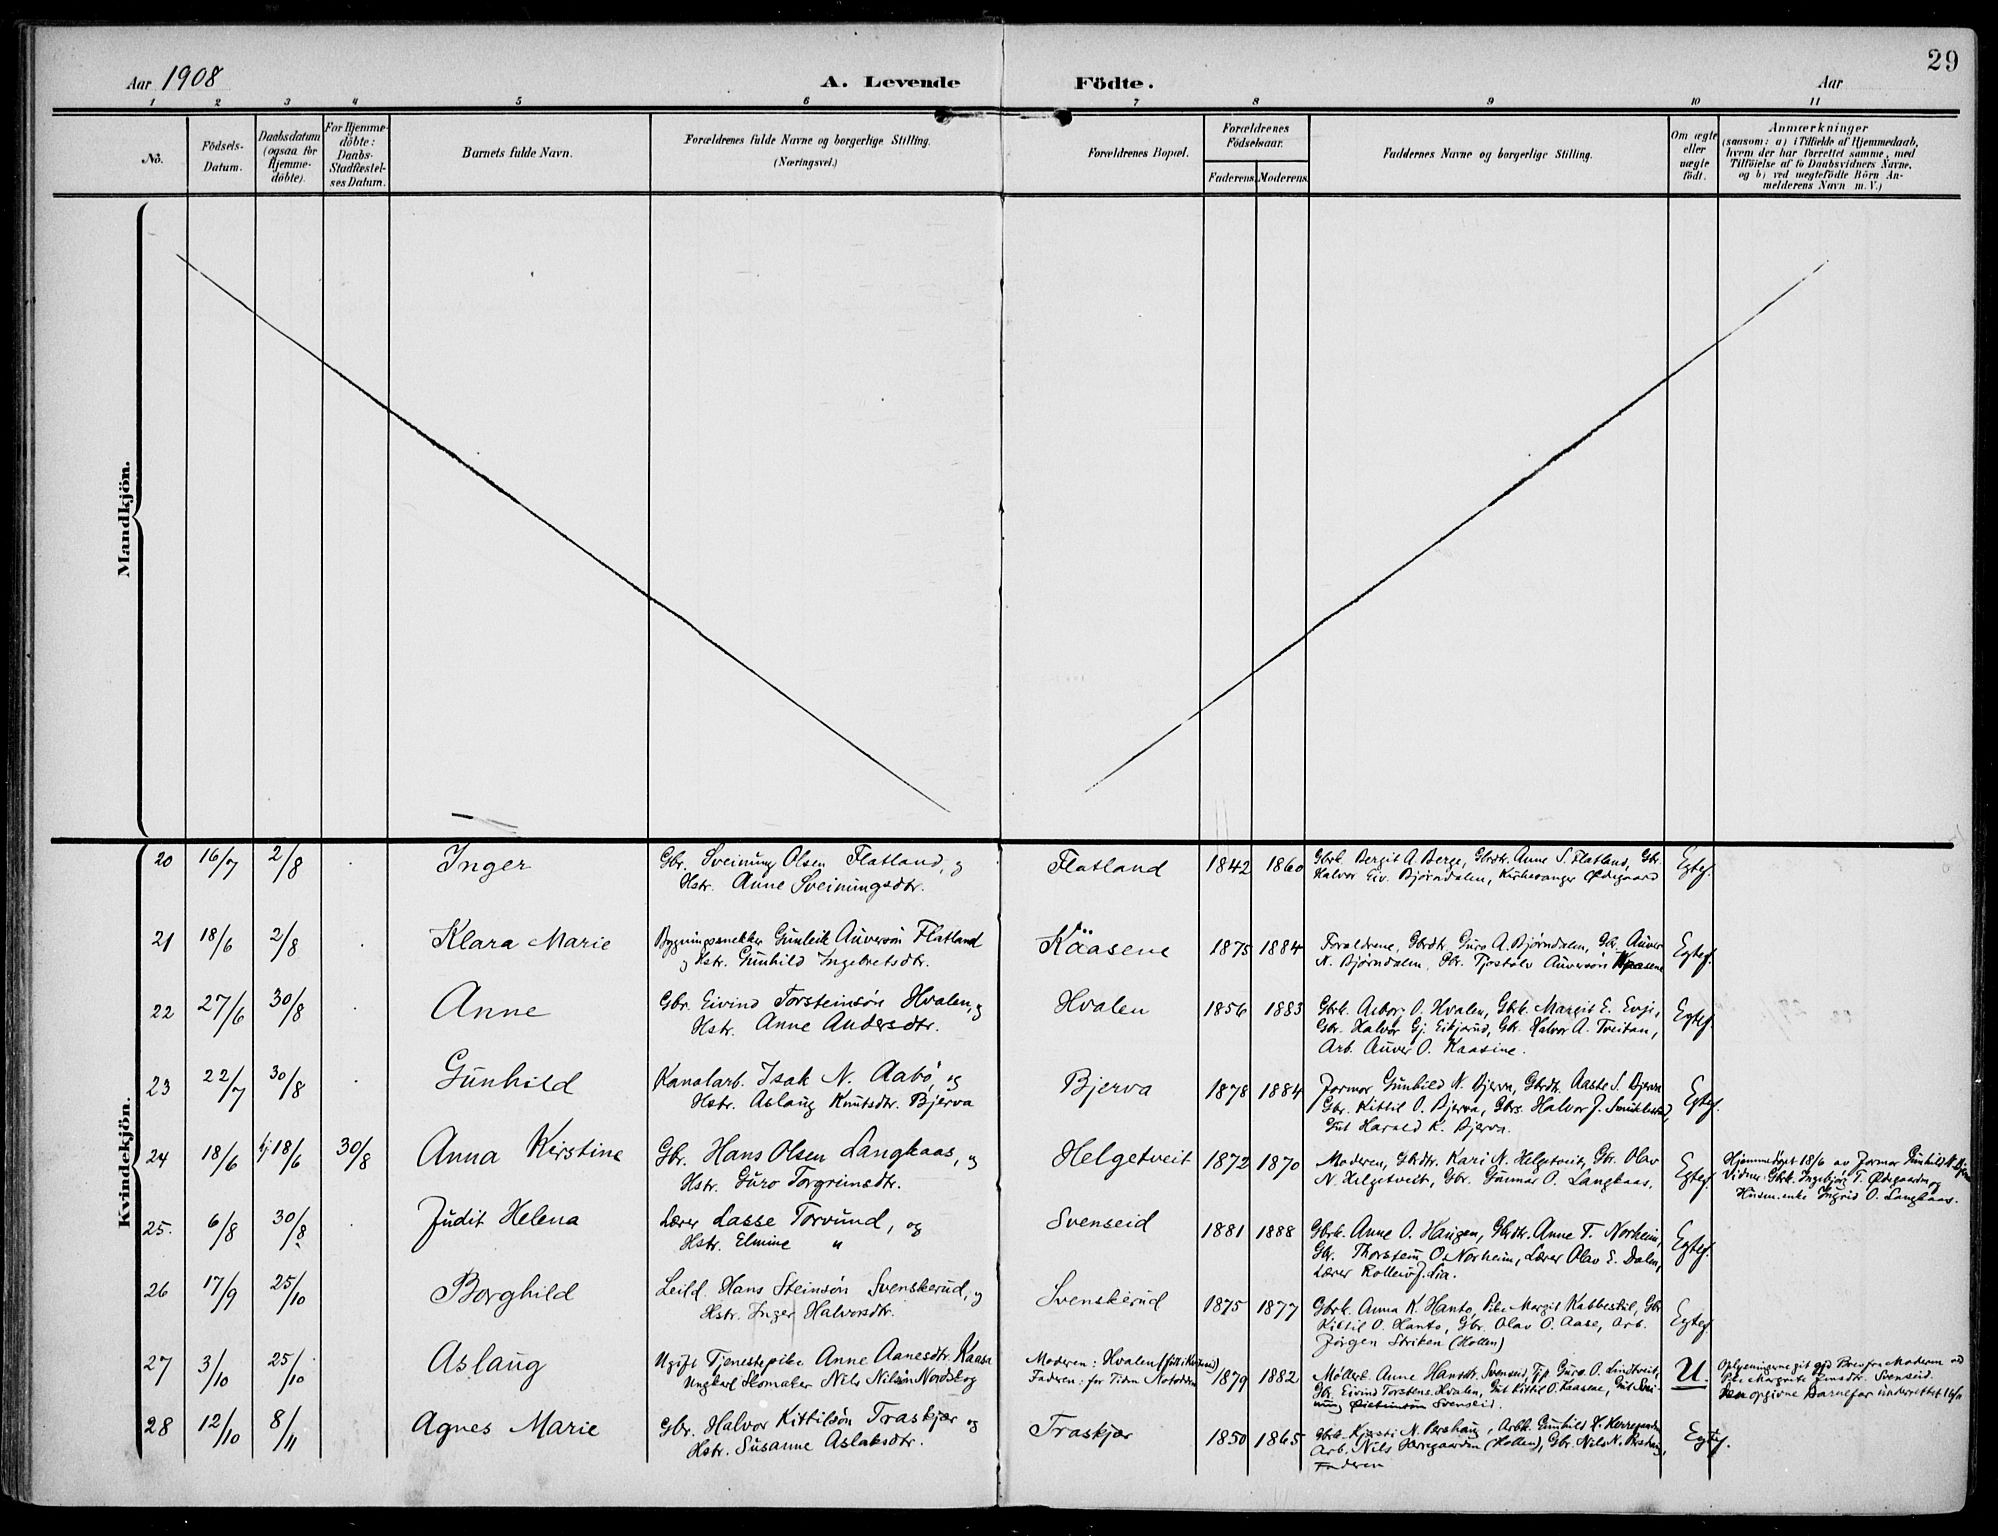 29
Aar 1908
A. Levende Födte.
Aar
1 2 3 4 5 6 7 8 9 10 11
No.
Födsels-Datum.
Daabsdatum (ogsaa for Hjemme-döbte).
For Hjemme-döbte: Daabs-Stadfæstel-ses Datum.
Barnets fulde Navn.
Forældrenes fulde Navne og borgerlige Stilling.
(Næringsvei.)
Forældrenes Bopæl.
Forældrenes Födselsaar.
Faderens. Moderens.
Faddernes Navne og borgerlige Stilling.
Om ægte eller uægte födt.
Anmærkninger
(saasom: a) i Tilfælde af Hjemmedaab,
hvem der har forrettet samme, med
Tilföielse af to Daabsvidners Navne,
og b) ved uægtefödte Börn An-
melderens Navn m. V.)
Mandkjön.
Kvindekjön.
20 16/7 2/8 Inger Gbr. Sveinung Olsen Flatland, og Flatland 1842 1860 Gbrk. Bergit A. Berge, Gbrdtr. Anne S. Flatland, Gbr. Egtef.
Hstr. Anne Sveinungsdtr. Halvor Eiv. Bjørndalen, Kirkesanger Ødegaard
21 18/6 2/8 Klara Marie Bygningssnekker Gunleik Auversøn Flatland Kaasene 1875 1884 Forældrene, Gbrdtr. Guro A. Bjørndalen, Gbr. Auver Egtef.
og Hstr. Gunhild Ingebretsdtr. N. Bjørndalen, Gbr. Tjostolv Auversøn Kaasene
22 27/6 30/8 Anne Gbr. Eivind Torsteinsøn Hvalen, og Hvalen 1856 1883 Gbrk. Asbor O. Hvalen, Gbrk. Margit E. Evju, Egtef.
Hstr. Anne Andersdtr. Gbr. Halvor Gj. Eikjarud, Gbr. Halvor A. Tveitan,
Arb. Auver O. Kaasine.
23 22/7 30/8 Gunhild Kanalarb. Isak N. Aabø, og Bjerva 1878 1884 Formor Gunhild N. Bjerva, Gbrdtr. Aaste S. Bjerva Egtef.
Hstr. Aslaug Knutsdtr. Bjerva Gbr. Kittil O. Bjerva, Gbrs. Halvor J.
Gut Harald K. Bjerva.
24 18/6 hj 18/6 30/8 Anna Kirstine Gbr. Hans Olsen Langkaas, og Helgetveit 1872 1870 Moderen, Gbrdtr. Kari N. Helgetveit, Gbr. Olav Egtef. Hjemmedøpt 18/6 av Jormor Gunhild N.
Hstr. Guro Torgrimsdtr. N. Helgetveit, Gbr. Gunnar O. Langkaas. Vidner: Gbrk. Ingebjør T. Ødegaarden og
Husm.enke Ingrid O. Langkaas.
25. 6/8 30/8 Judit Helena Lærer Lasse Torvund, og Svenseid 1881 1888 Gbrk. Anne O. Haugen, Gbrdtr. Anne T. Norheim, Egtef.
Hstr. Elmine " Gbr. Thorstein O. Norheim, Lærer Olav E. Dalen,
Lærer Rolleiv J. Lia.
26 17/9 25/10 Borghild Leild. Hans Steinsøn Svenskerud, og Svenskerud 1875 1877 Gbrk. Anna K. Hanto, Pike Margit Kabbestil, Gbr. Egtef.
Hstr. Inger Halvorsdtr. Kittil O. Hanto, Gbr. Olav O. Aase, Arb.
Jörgen Striken (Hollen)
27 3/10 25/10 Aslaug Ugift Tjenestepike Anne Aanesdtr. Kaasa Moderen: Hvalen 1879 1882 Møllerk. Anne Hansdtr. Svenseid, Tjp. Guro O. Lindtveit, U. Oplysningerne git gjd Brev fra Moderen ved
Ungkarl Skomaker Nils Nilsen Nordskog Faderen: for Tiden Notodden Gbr. Eivind Torstens. Hvalen, Gut Kittil O. Kaasene, Gut Svei- Pike Margrete Svenseid.
nung Svenseid. opgivne Barnefar underrettet
28 12/10 8/11 Agnes Marie Gbr. Halvor Kittilsøn Traskjær og Traskjær 1850 1865 Gbrk. Kjersti N. Pershaug, Arbk. Gunhild H. Egtef.
Hstr. Susanne Aslaksdtr. Arb. Nils (Hollen), Gbr. Nils N. Pershaug,
Faderen